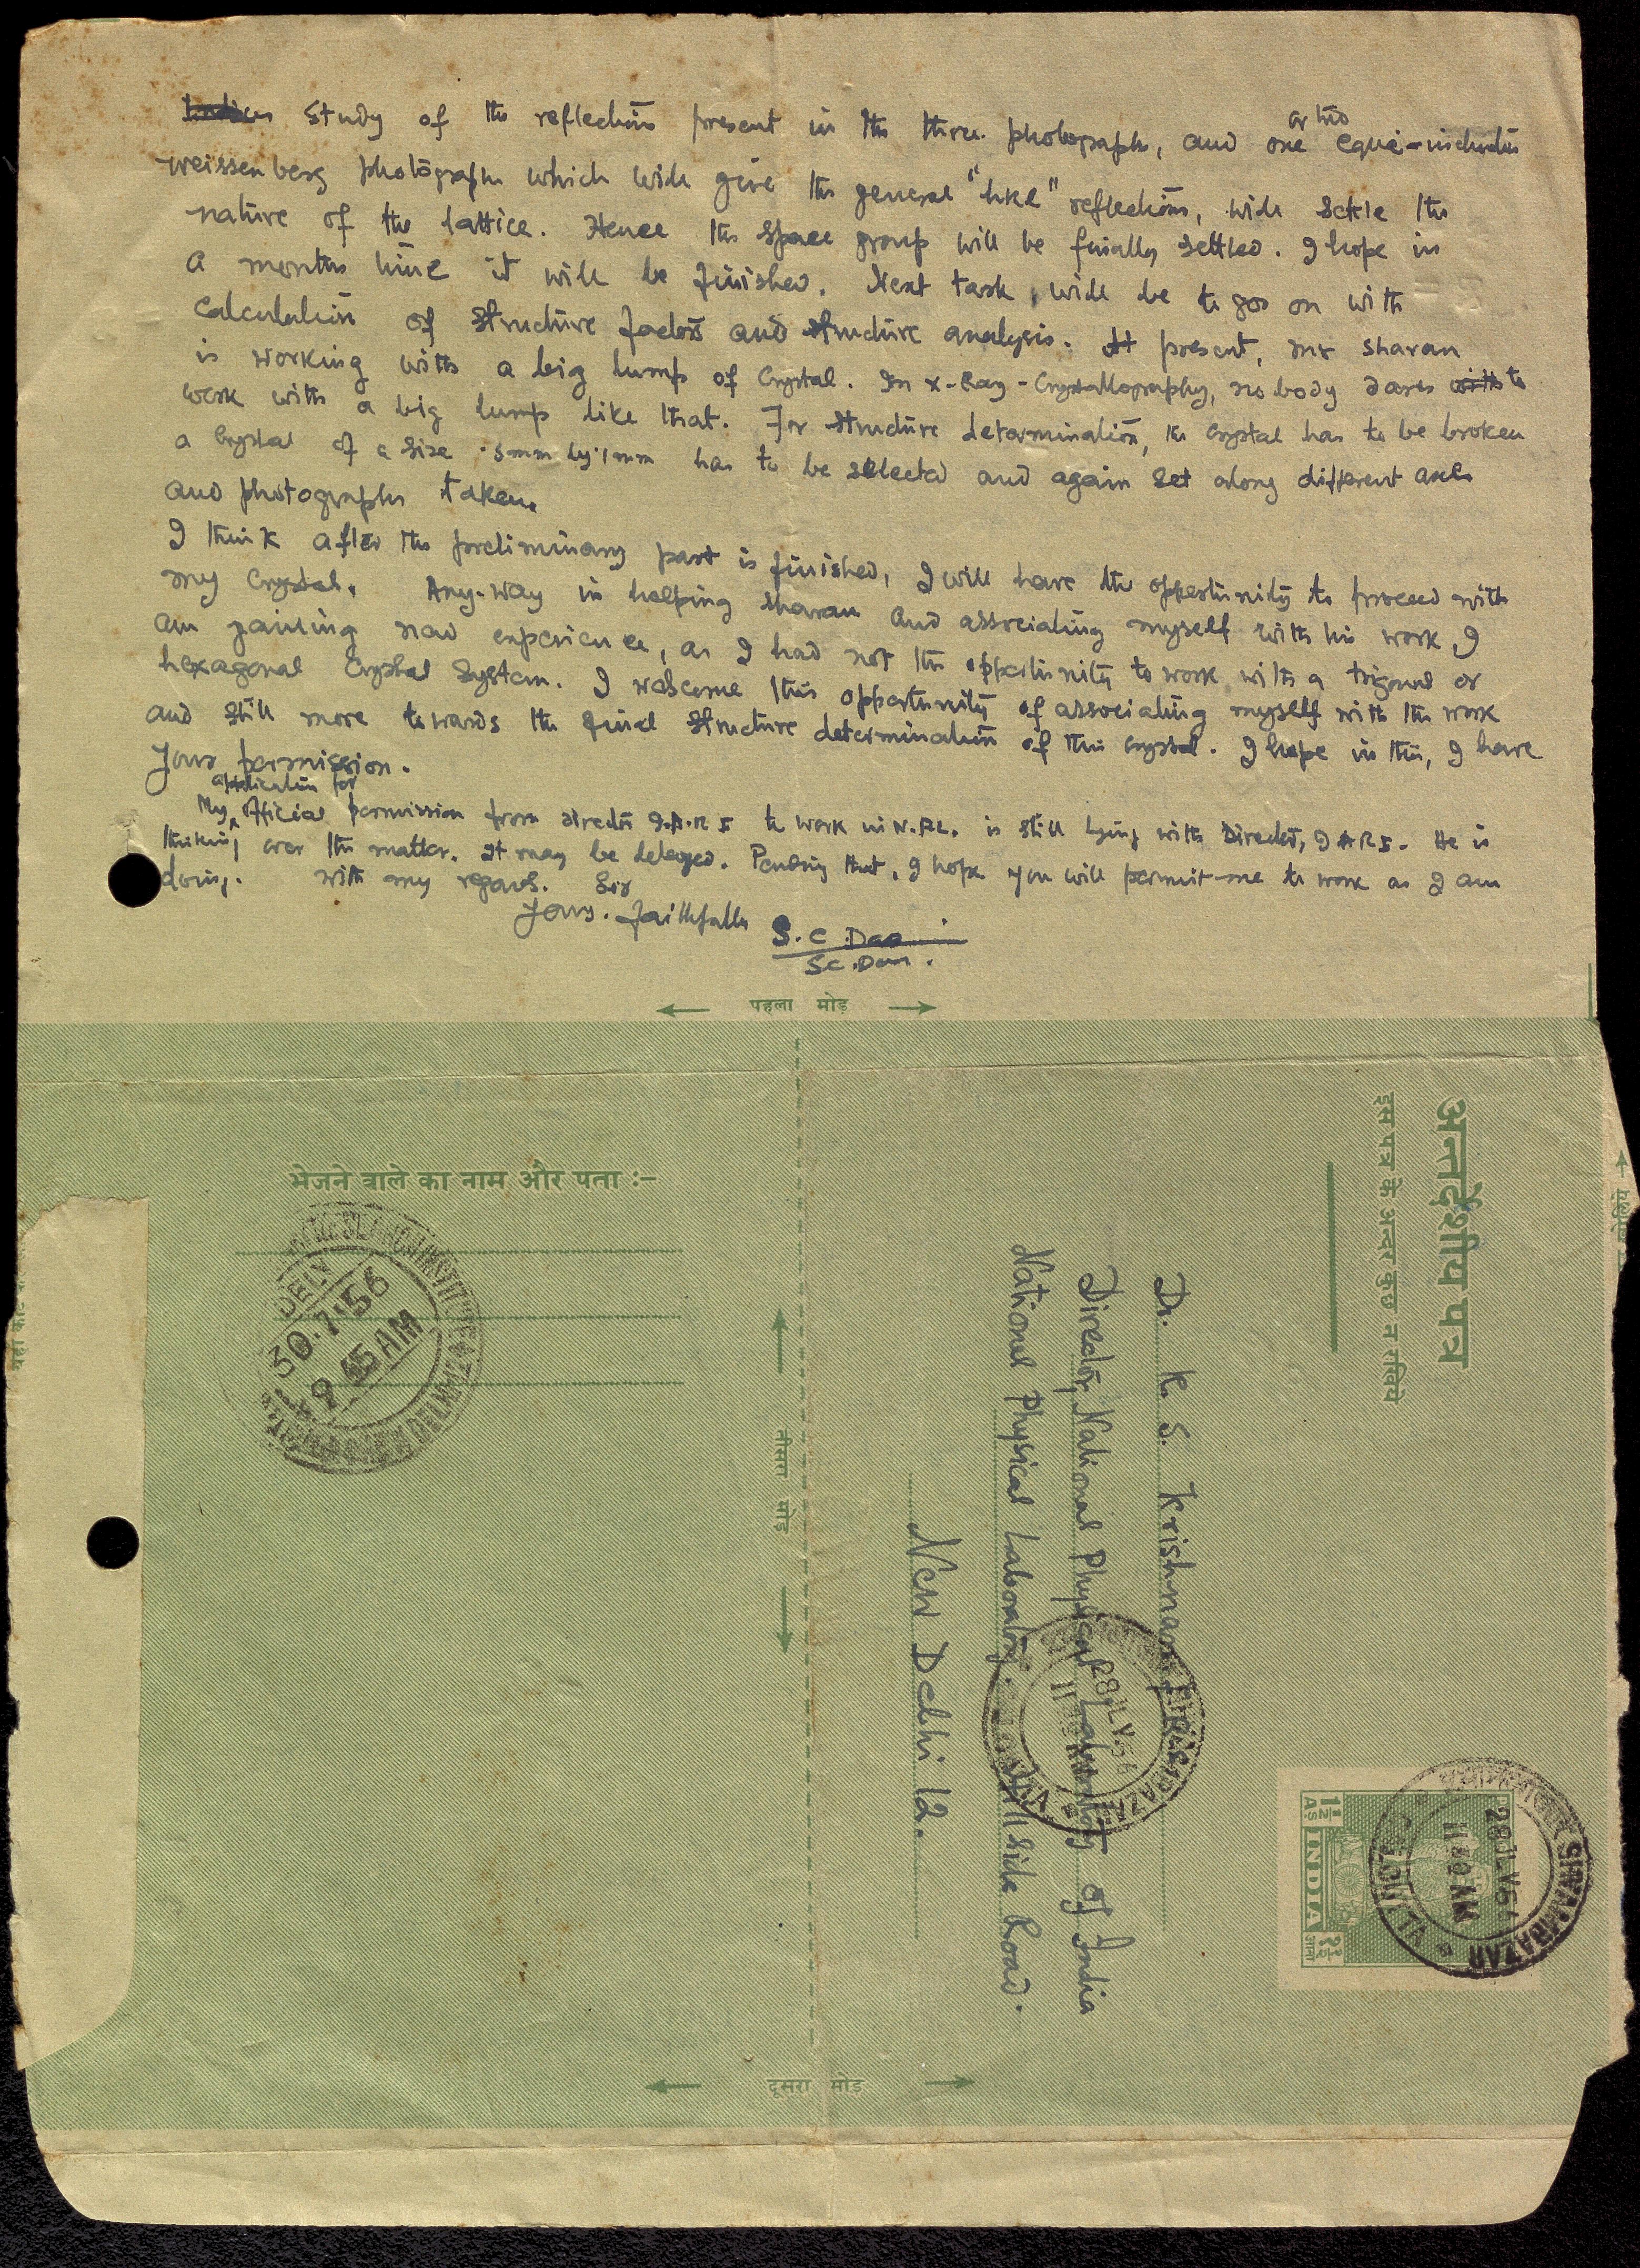 Study of the reflections present in the three photographs, and one or two equi-inclination
Weissenberg photographs which will give the general "hkl" reflections, will settle the
nature of the lattice. Hence the space group will be finally settled. I hope in
a months time it will be finished. Next task, will be to go on with
Calculation of Structure factors and structure analysis. At present, Mr Sharan
is working with a big lump of Crystal. In X-Ray-Crystallography, no body dares to
work with a big lump like that. For structure determination, the crystal has to be broken
a Crystal of a size .5mm by .1mm has to be selected and again set along different axes
and photographs taken.
I think after the preliminary part is finished, I will have the opportunity to proceed with
my crystal. Any-way in helping Sharan and associating myself with his work, I
am gaining new experience, as I had not the opportunity to work with a trigonal or
hexagonal Crystal System. I welcome this opportunity of associating myself with the work
and still more towards the final structure determination of this crystal. I hope in this, I have
your permission.
My application for official permission from Director I.A.R.I to work in N.P.L. is still lying with Director, I.A.R.I. He is
thinking over the matter. It may be delayed. Pending that, I hope you will permit me to work as I am
doing. With my regards. Sir
Yours faithfully
S. C. Das
S.C. Das.
पहला मोड़
भेजने वाले का नाम और पता :—
30.7.56
9 45 AM
तीसरा मोड़
अन्तर्देशीय पत्र
इस पत्र के अन्दर कुछ न रखिये
Dr. K. S. Krishnan
Director, National Physical Laboratory of India
National Physical Laboratory. Hill side Road.
New Delhi 12.
28 JLY 56
SHYAMBAZAR
28 JLY 56
11 30 AM
1½ As INDIA १½ आना
दूसरा मोड़